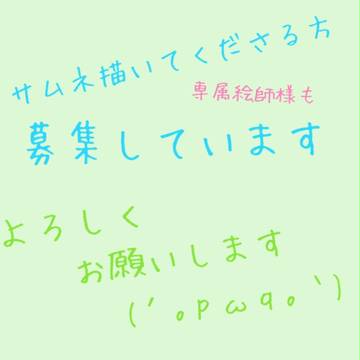 サムネ描いてくださる方
専属絵師様も
募集しています
よろしく
お願いします
(´｡p ω q｡`)